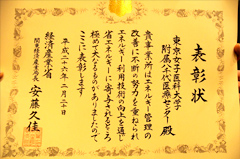 表彰状
東京女子医科大学
附属八千代医療センター殿
貴事業所はエネルギー管理の
改善に不断の努力を重ねられ
エネルギー利用技術の向上を通じ
省エネルギーに寄与されるところ
極めて大なるものがありましたので
ここに表彰します
平成二十六年二月二十日
経済産業省
関東経済産業局長
安藤久佳